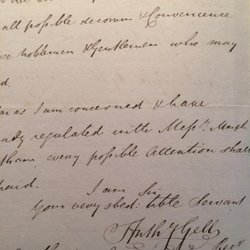 all possible decorum & Convenience
noblemen & Gentlemen who may
as I am concerned & have
regulated with Messrs. Marsh
every possible Attention shall
I am Sir
Your very obedt. hble Servant
Anth y Gell